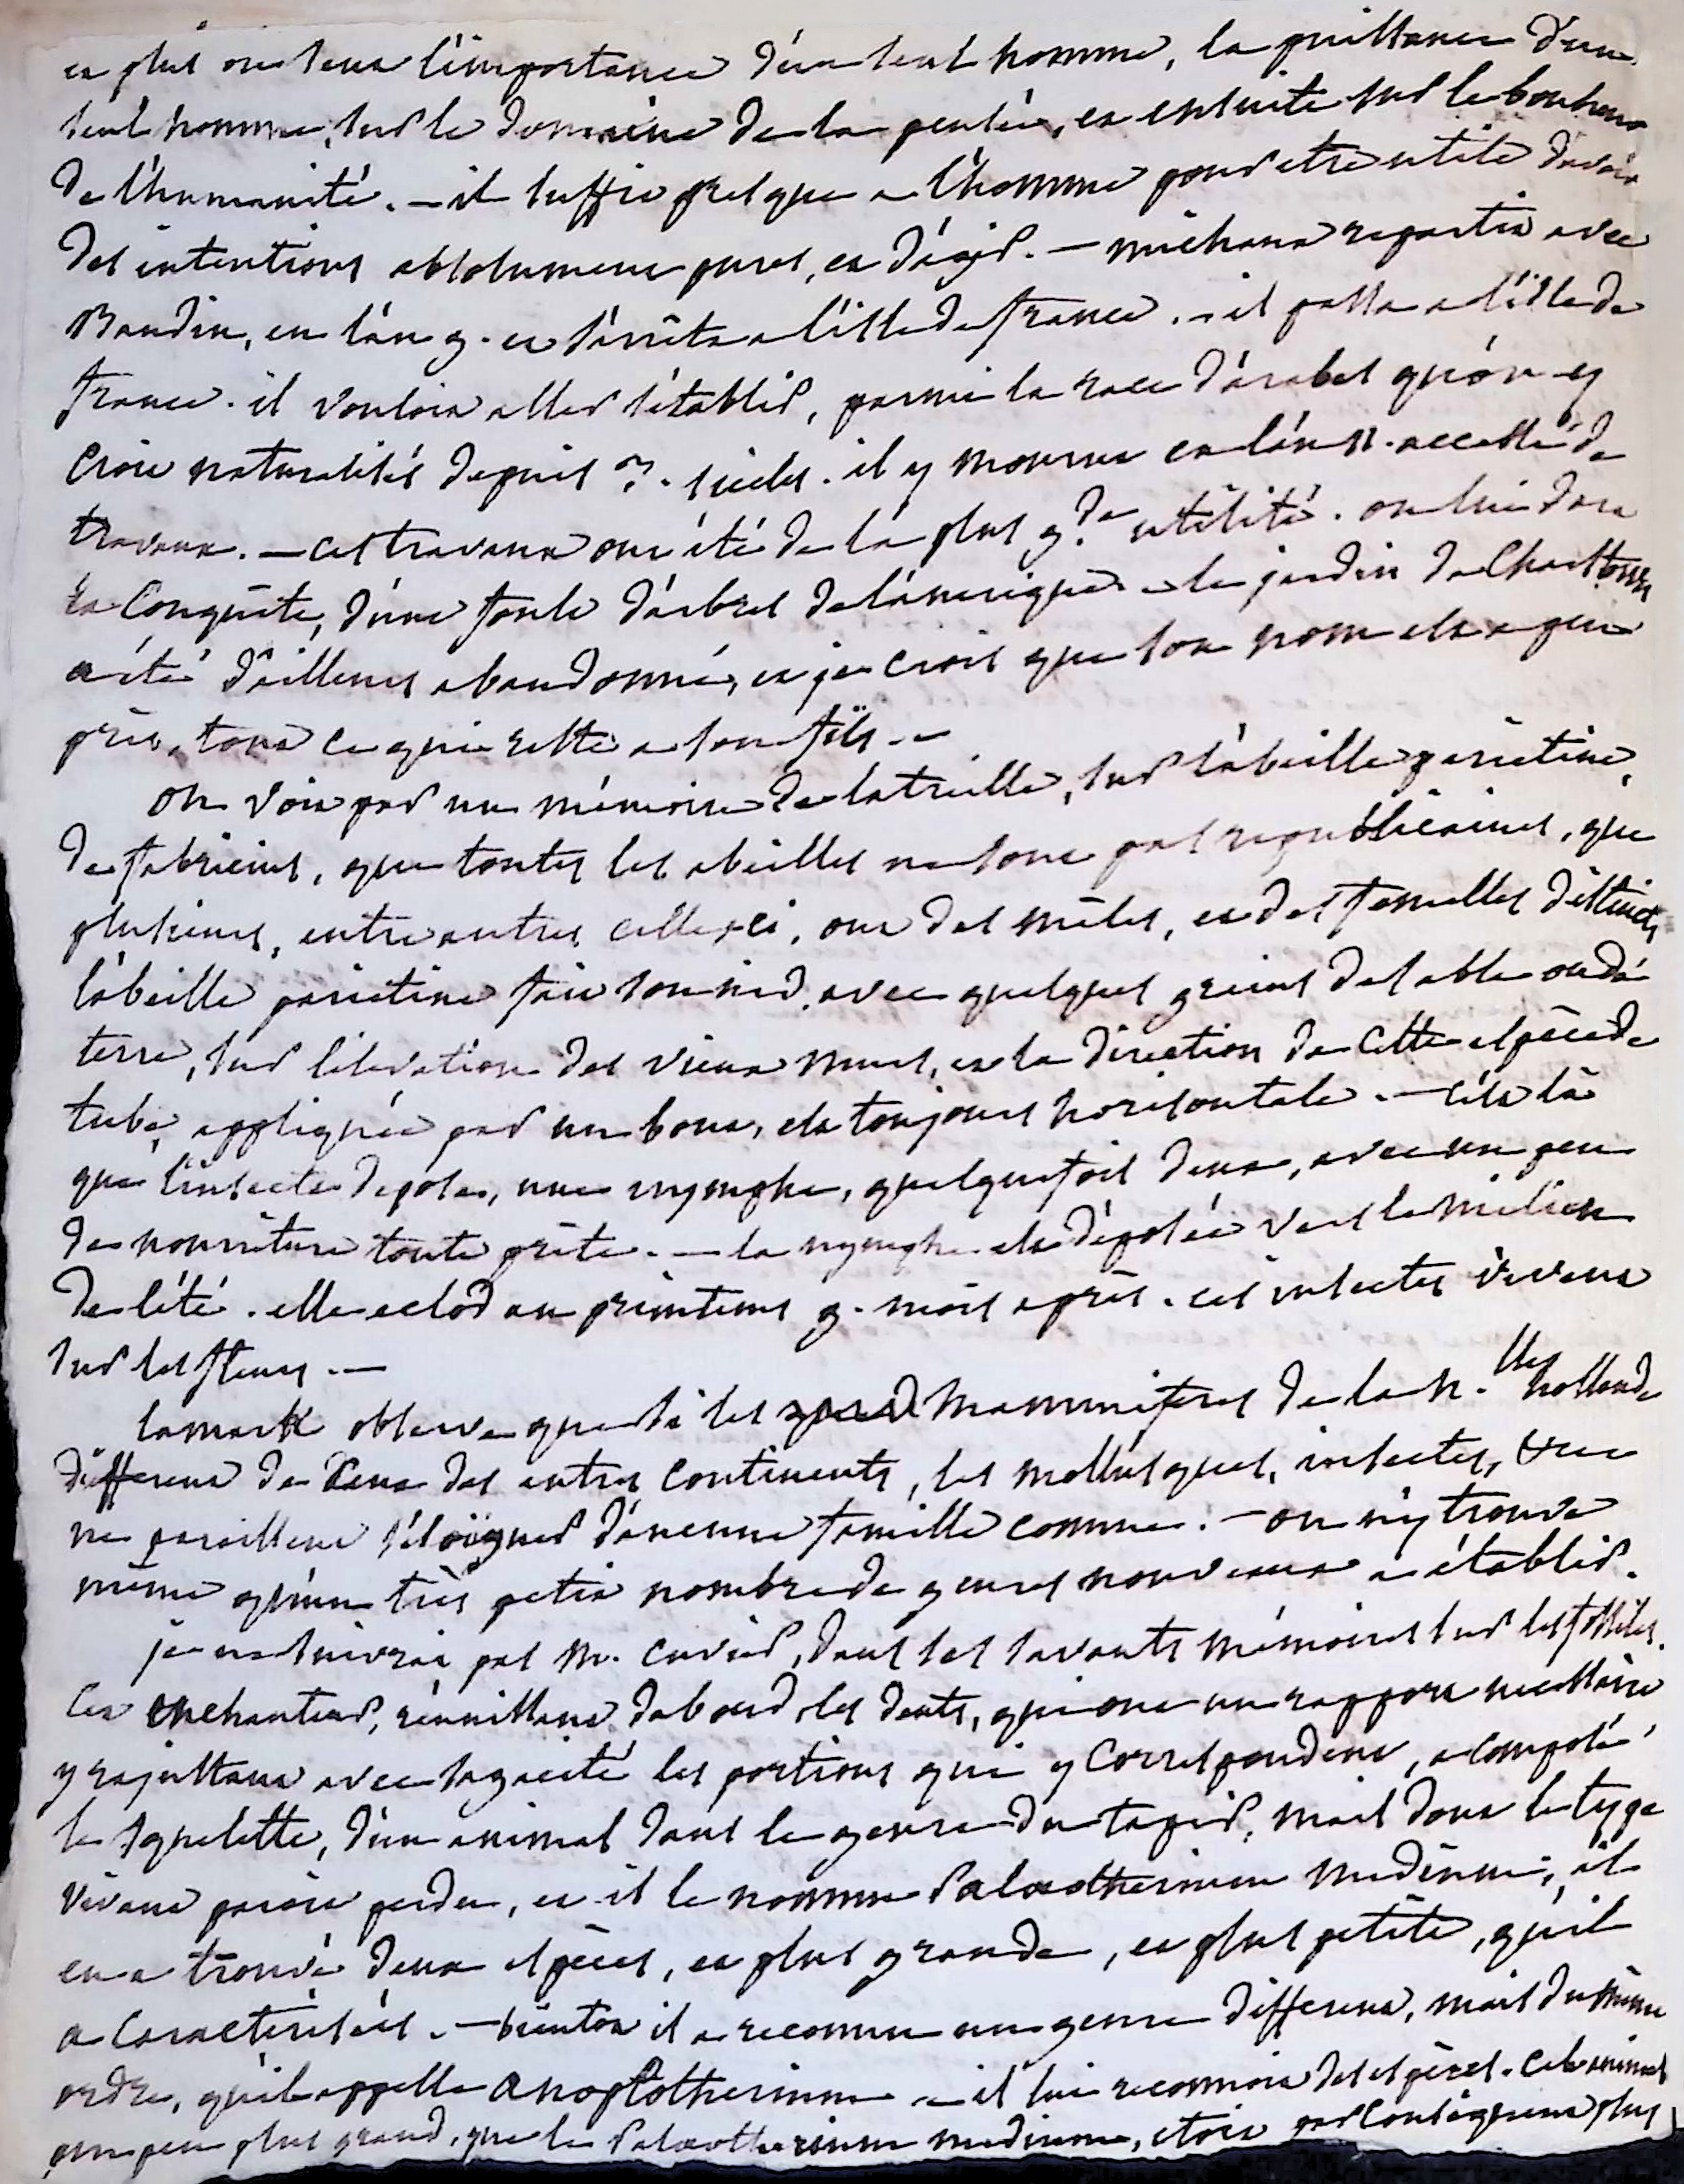 et plus on sent l'importance d'un seul homme, la puissance d'un
seul homme, sur le domaine de la pensée, et ensuite sur le bonheur
de l'humanité. — il suffit presque a l'homme pour etre utile d'avoir
des intentions absolument pures, et d'agir. — michaux repartit avec
Baudin, en l'an 9. et s'arrêta a l'isle de france. — il passa a l'isle de
france. il vouloit aller s'établir, parmi la race d'arabes qu'on y
croit naturalisés depuis 3. siecles. il y mourut en l'an 11. accablé de
travaux. — ces travaux ont été de la plus g.de utilité. on lui doit
la conquête, d'une foule d'arbres de l'amerique — le jardin de Charlstown
a été d'ailleurs abandonné, et je crois que son nom est a peu
près, tout ce qui reste a son fils. —
on voit par un mémoire de latreille, sur l'abeille parietine,
de fabricius, que toutes les abeilles ne sont pas republicaines, que
plusieurs, entre autres celle-ci, ont des mâles, et des femelles distincts
l'abeille parietine fait son nid, avec quelques grains de sable ou de
terre, sur l'élévation des vieux murs, et la direction de cette espèce de
tube, appliquée par un bout, est toujours horisontale. — c'est là
que l'insecte depose, une nymphe, quelquefois deux, avec un peu
de nourriture toute prête. — la nymphe est déposée vers le milieu
de l'été. elle eclôd au printems 9. mois après. ces insectes vivent
sur les fleurs. —
lamark observe que si les mammiferes de la n.lle hollande
different de ceux des autres continents, les mollusques, insectes, &c
ne paroissent s'éloigner d'aucune famille connue. — on n'y trouve
même qu'un très petit nombre de genres nouveaux a établir.
je ne suivrai pas M. cuvier, dans ses savants mémoires sur les fossiles.
cet enchanteur, réunissant d'abord les dents, qui ont un rapport necessaire
y rajustant avec sagacité les portions qui y correspondent, a composé
le squelette, d'un animal dans le genre du tapir, mais dont le type
vivant paroit perdu, et il le nomme Palæotherium medium; il
en a trouvé deux espèces, et plus grande, et plus petite, qu'il
a caractérisées. — bientôt il a reconnu un genre different, mais du même
ordre, qu'il appelle anoplotherium — il lui reconnoit des espèces. cet animal
un peu plus grand, que le Palæotherium medium, etoit par conséquent plus